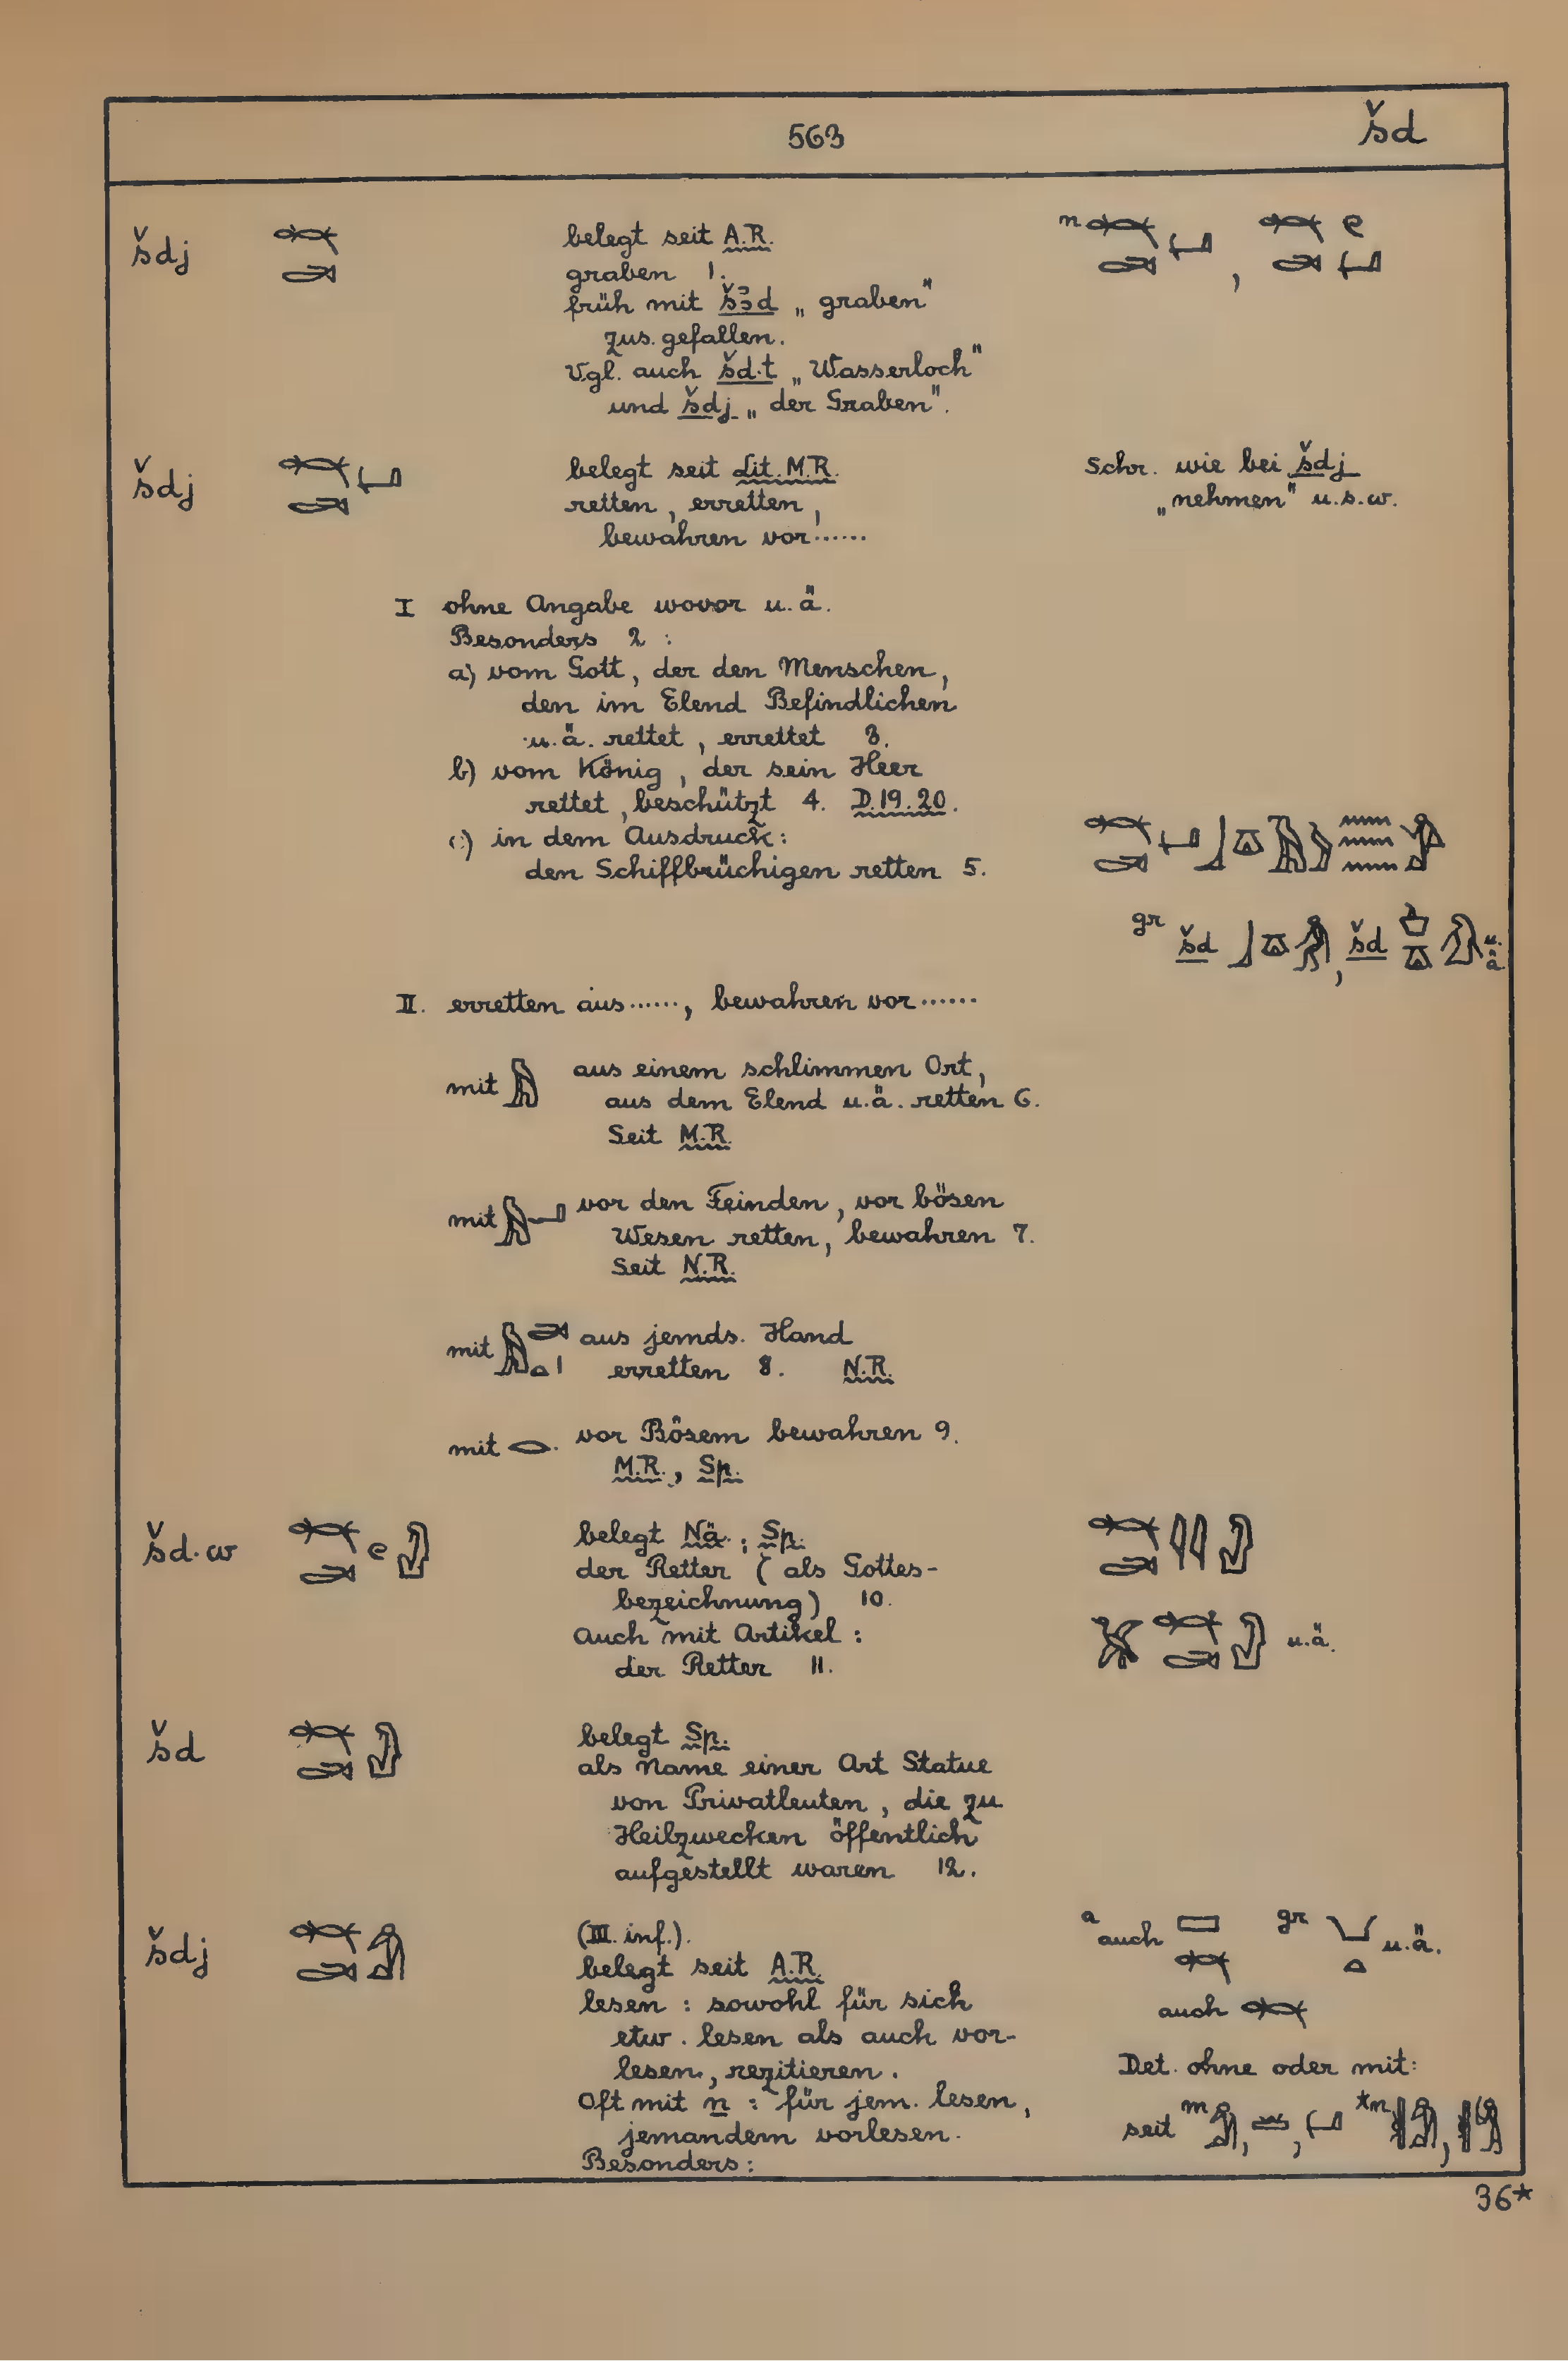 563 šd
šdj
belegt seit A.R.
graben 1.
früh mit šꜣd „graben"
zus. gefallen.
Vgl. auch šd.t „Wasserloch"
und šdj „der Graben".
šdj
belegt seit Lit. M.R.
retten, erretten,
bewahren vor......
Schr. wie bei šdj
„nehmen" u.s.w.
I ohne Angabe wovor u.ä.
Besonders 2 :
a) vom Gott, der den Menschen,
den im Elend Befindlichen
u.ä. rettet, errettet 3.
b) vom König, der sein Heer
rettet, beschützt 4. D.19.20.
c) in dem Ausdruck:
den Schiffbrüchigen retten 5.
gr šd , šd u.ä.
II. erretten aus......, bewahren vor......
mit aus einem schlimmen Ort,
aus dem Elend u.ä. retten 6.
Seit M.R.
mit vor den Feinden, vor bösen
Wesen retten, bewahren 7.
Seit N.R.
mit aus jemds. Hand
erretten 8. N.R.
mit vor Bösem bewahren 9.
M.R., Sp.
šd.w
belegt Nä.; Sp.
der Retter (als Gottes-
bezeichnung) 10.
Auch mit Artikel:
der Retter 11.
u.ä.
šd
belegt Sp.
als Name einer Art Statue
von Privatleuten, die zu
Heilzwecken öffentlich
aufgestellt waren 12.
šdj
(III. inf.).
belegt seit A.R.
lesen : sowohl für sich
etw. lesen als auch vor-
lesen, rezitieren.
Oft mit n : für jem. lesen,
jemandem vorlesen.
Besonders:
a auch gr u.ä.
auch
Det. ohne oder mit:
seit m , , tn ,
36*